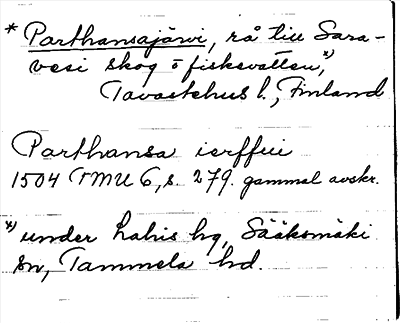 * Parthansajärvi, rå till Sara-
vesi skog o fiskevatten*),
Tavastehus l., Finland
Parthansa ierffui
1504 FMU 6, s. 279. gammal avskr.
*) under Lahis by, Sääksmäki
sn, Tammela hd.